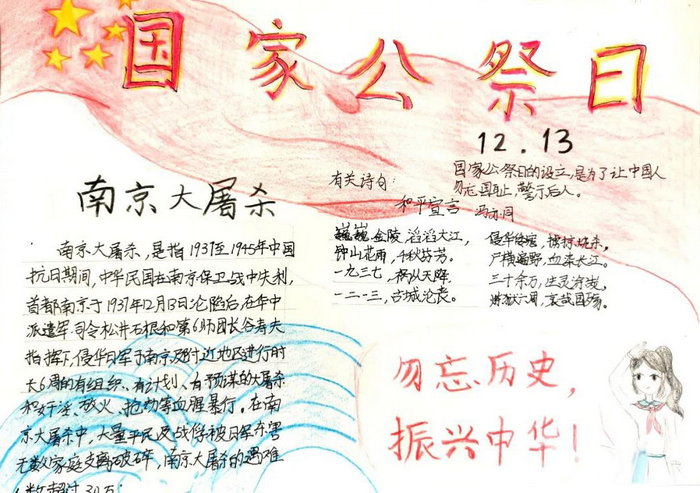 国家公祭日
12.13
国家公祭日的设立,是为了让中国人
勿忘国耻,警示后人。
有关诗句:
和平宣言 冯亦同
巍巍金陵,滔滔大江,
钟山花雨,千秋芬芳。
一九三七,祸从天降,
一二一三,古城沦丧。
侵华倭寇,掳掠烧杀。
尸横遍野,血染长江。
三十余万,生灵涂炭。
炼狱六周,哀哉国殇。
南京大屠杀
南京大屠杀,是指1937至1945年中国
抗日期间,中华民国在南京保卫战中失利,
首都南京于1937年12月13日沦陷后,在华中
派遣军司令松井石根和第6师团长谷寿夫
指挥下,侵华日军于南京及附近地区进行时
大6周的有组织、有计划、有预谋的大屠杀
和奸淫、放火、抢劫等血腥暴行。在南
京大屠杀中,大量平民及战俘被日军杀害
无数家庭支离破碎,南京大屠杀的遇难
人数超过30万。
勿忘历史,
振兴中华!